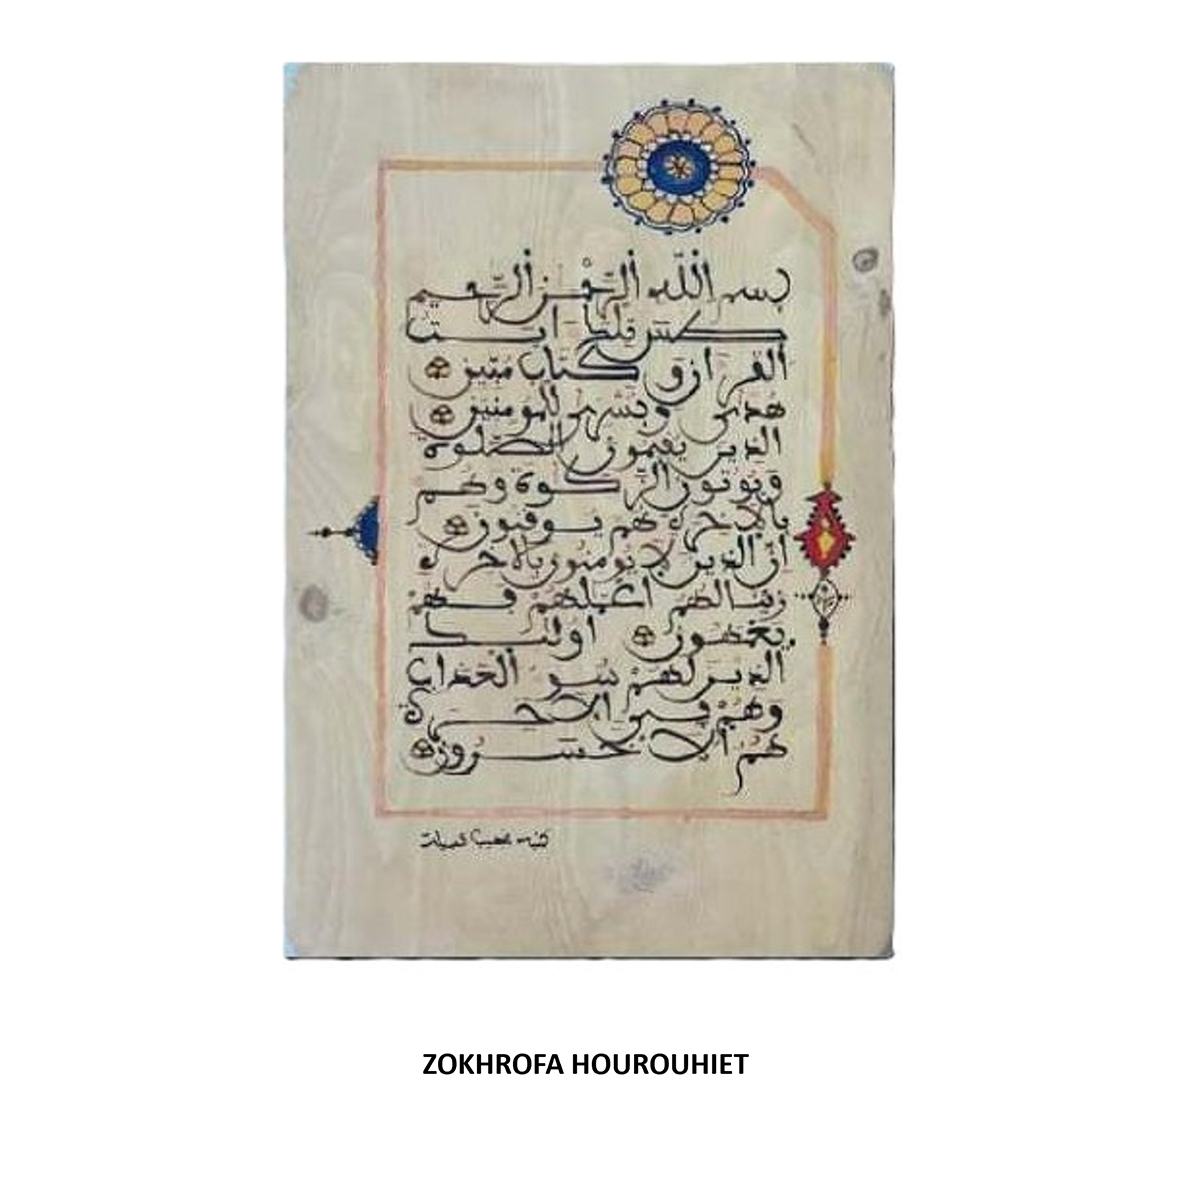 بسم الله الرحمن الرحيم
طس تلك ءايت
القرءان وكتاب مبين
هدى وبشرى للمومنين
الذين يقيمون الصلوة
ويوتون الزكوة وهم
بالاخرة هم يوقنون
ان الذين لا يومنون بالاخرة
زينا لهم اعملهم فهم
يعمهون اولئك
الذين لهم سوء العذاب
وهم في الاخرة
هم الاخسرون
كتبه
ZOKHROFA HOUROUHIET